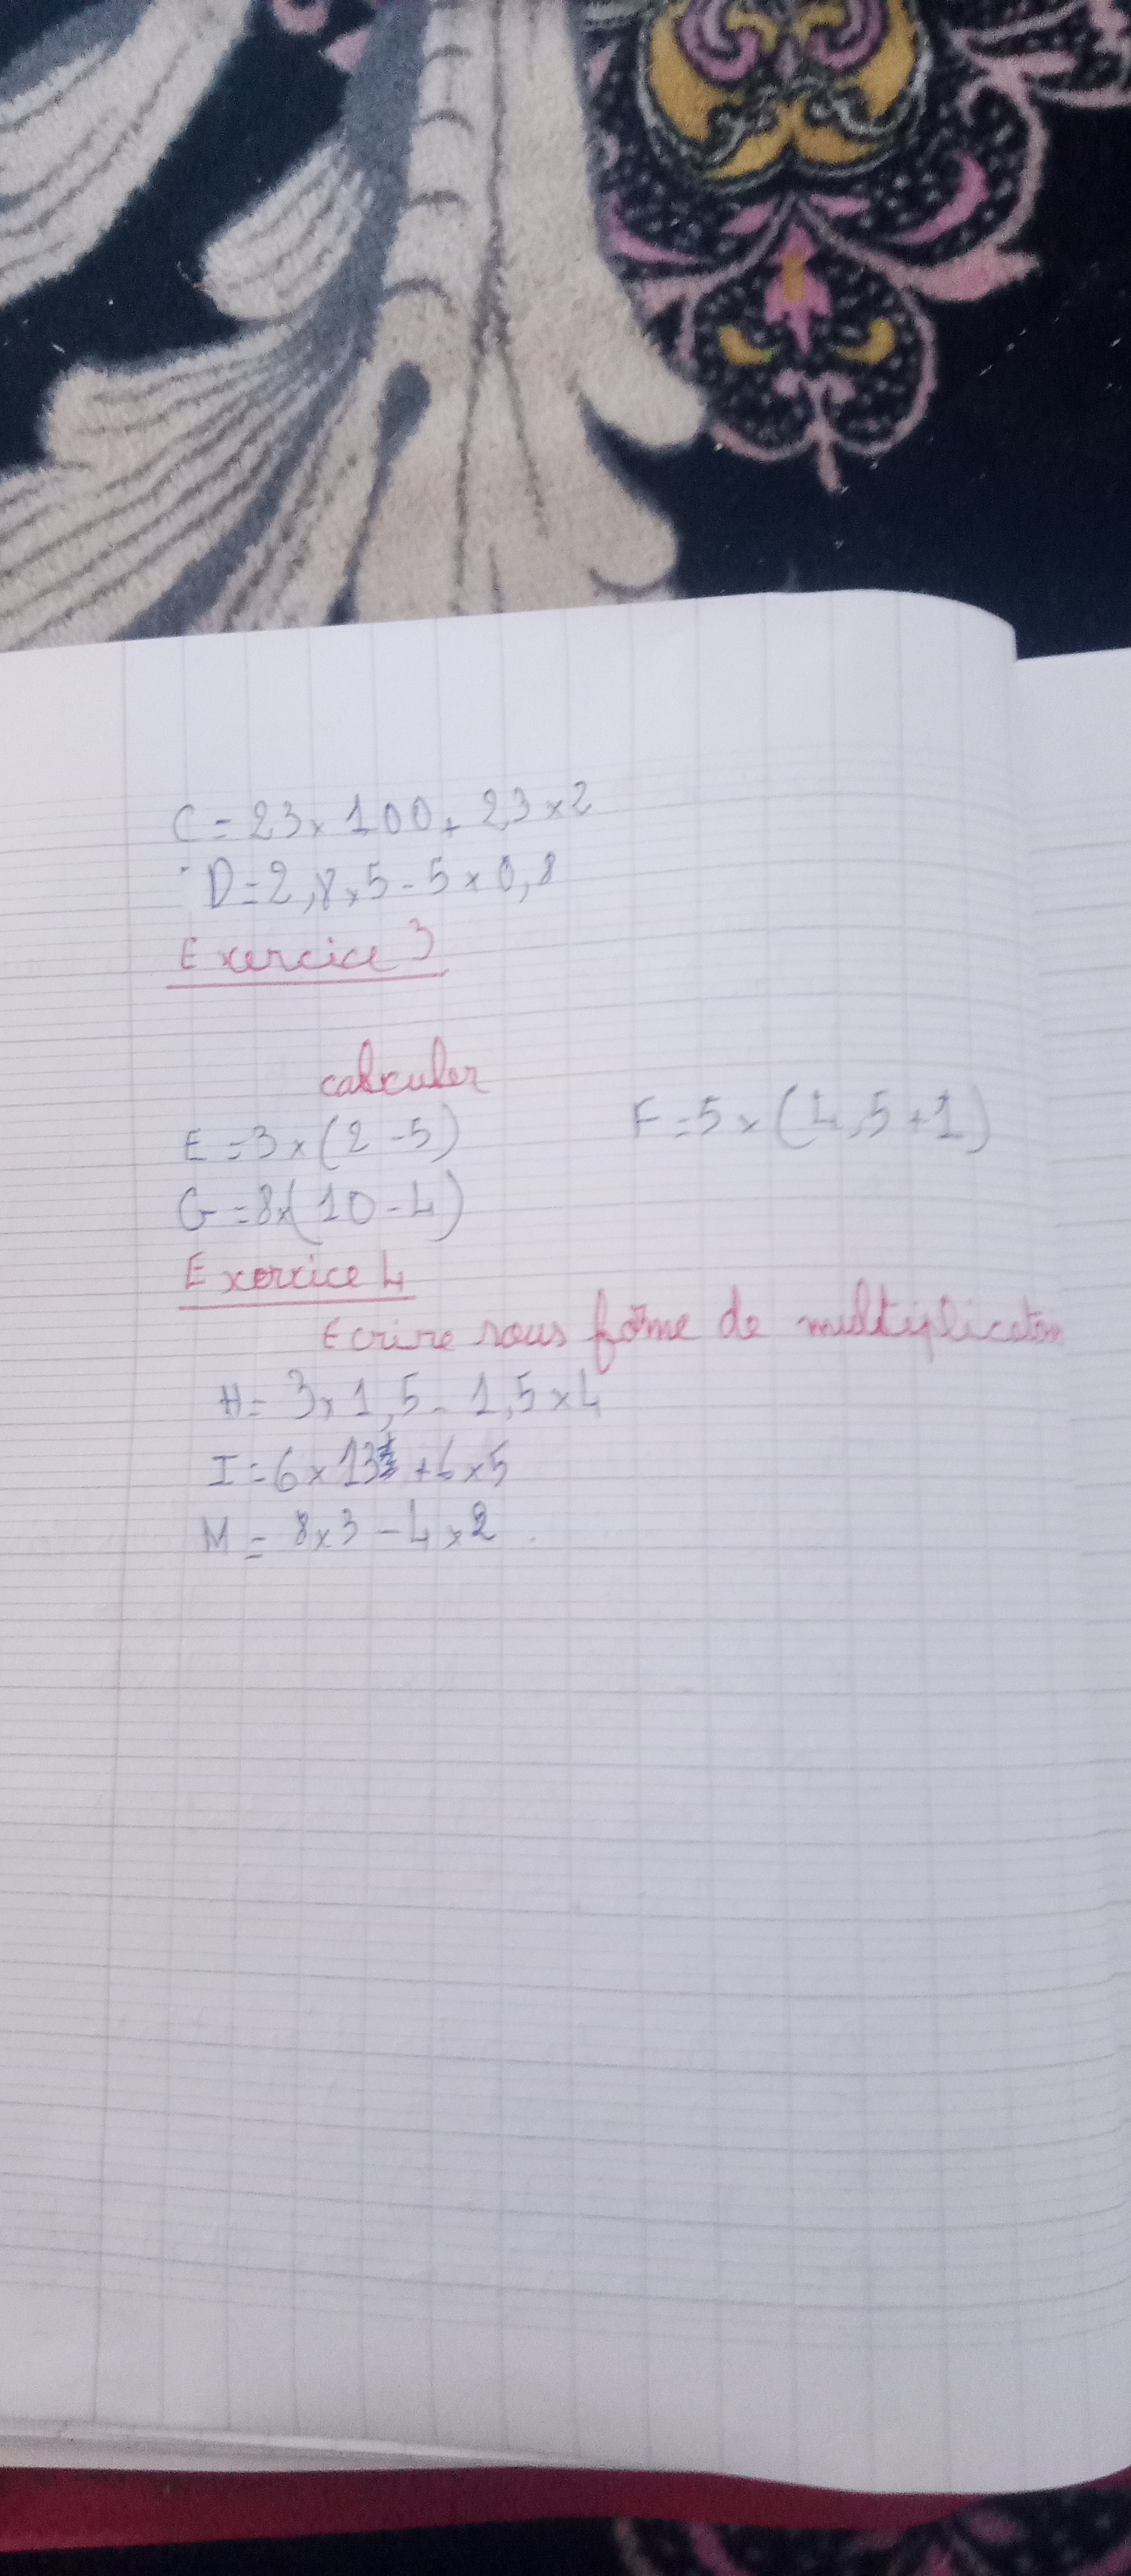 C = 23 x 100 + 23 x 2
D = 2,8 x 5 - 5 x 0,8
Exercice 3
calculer
E = 3 x (2 - 5) F = 5 x (4,5 + 1)
G = 8 x (10 - 4)
Exercice 4
Ecrire sous forme de multiplication
H = 3 x 1,5 - 1,5 x 4
I = 6 x 13 + 6 x 5
M = 8 x 3 - 4 x 2